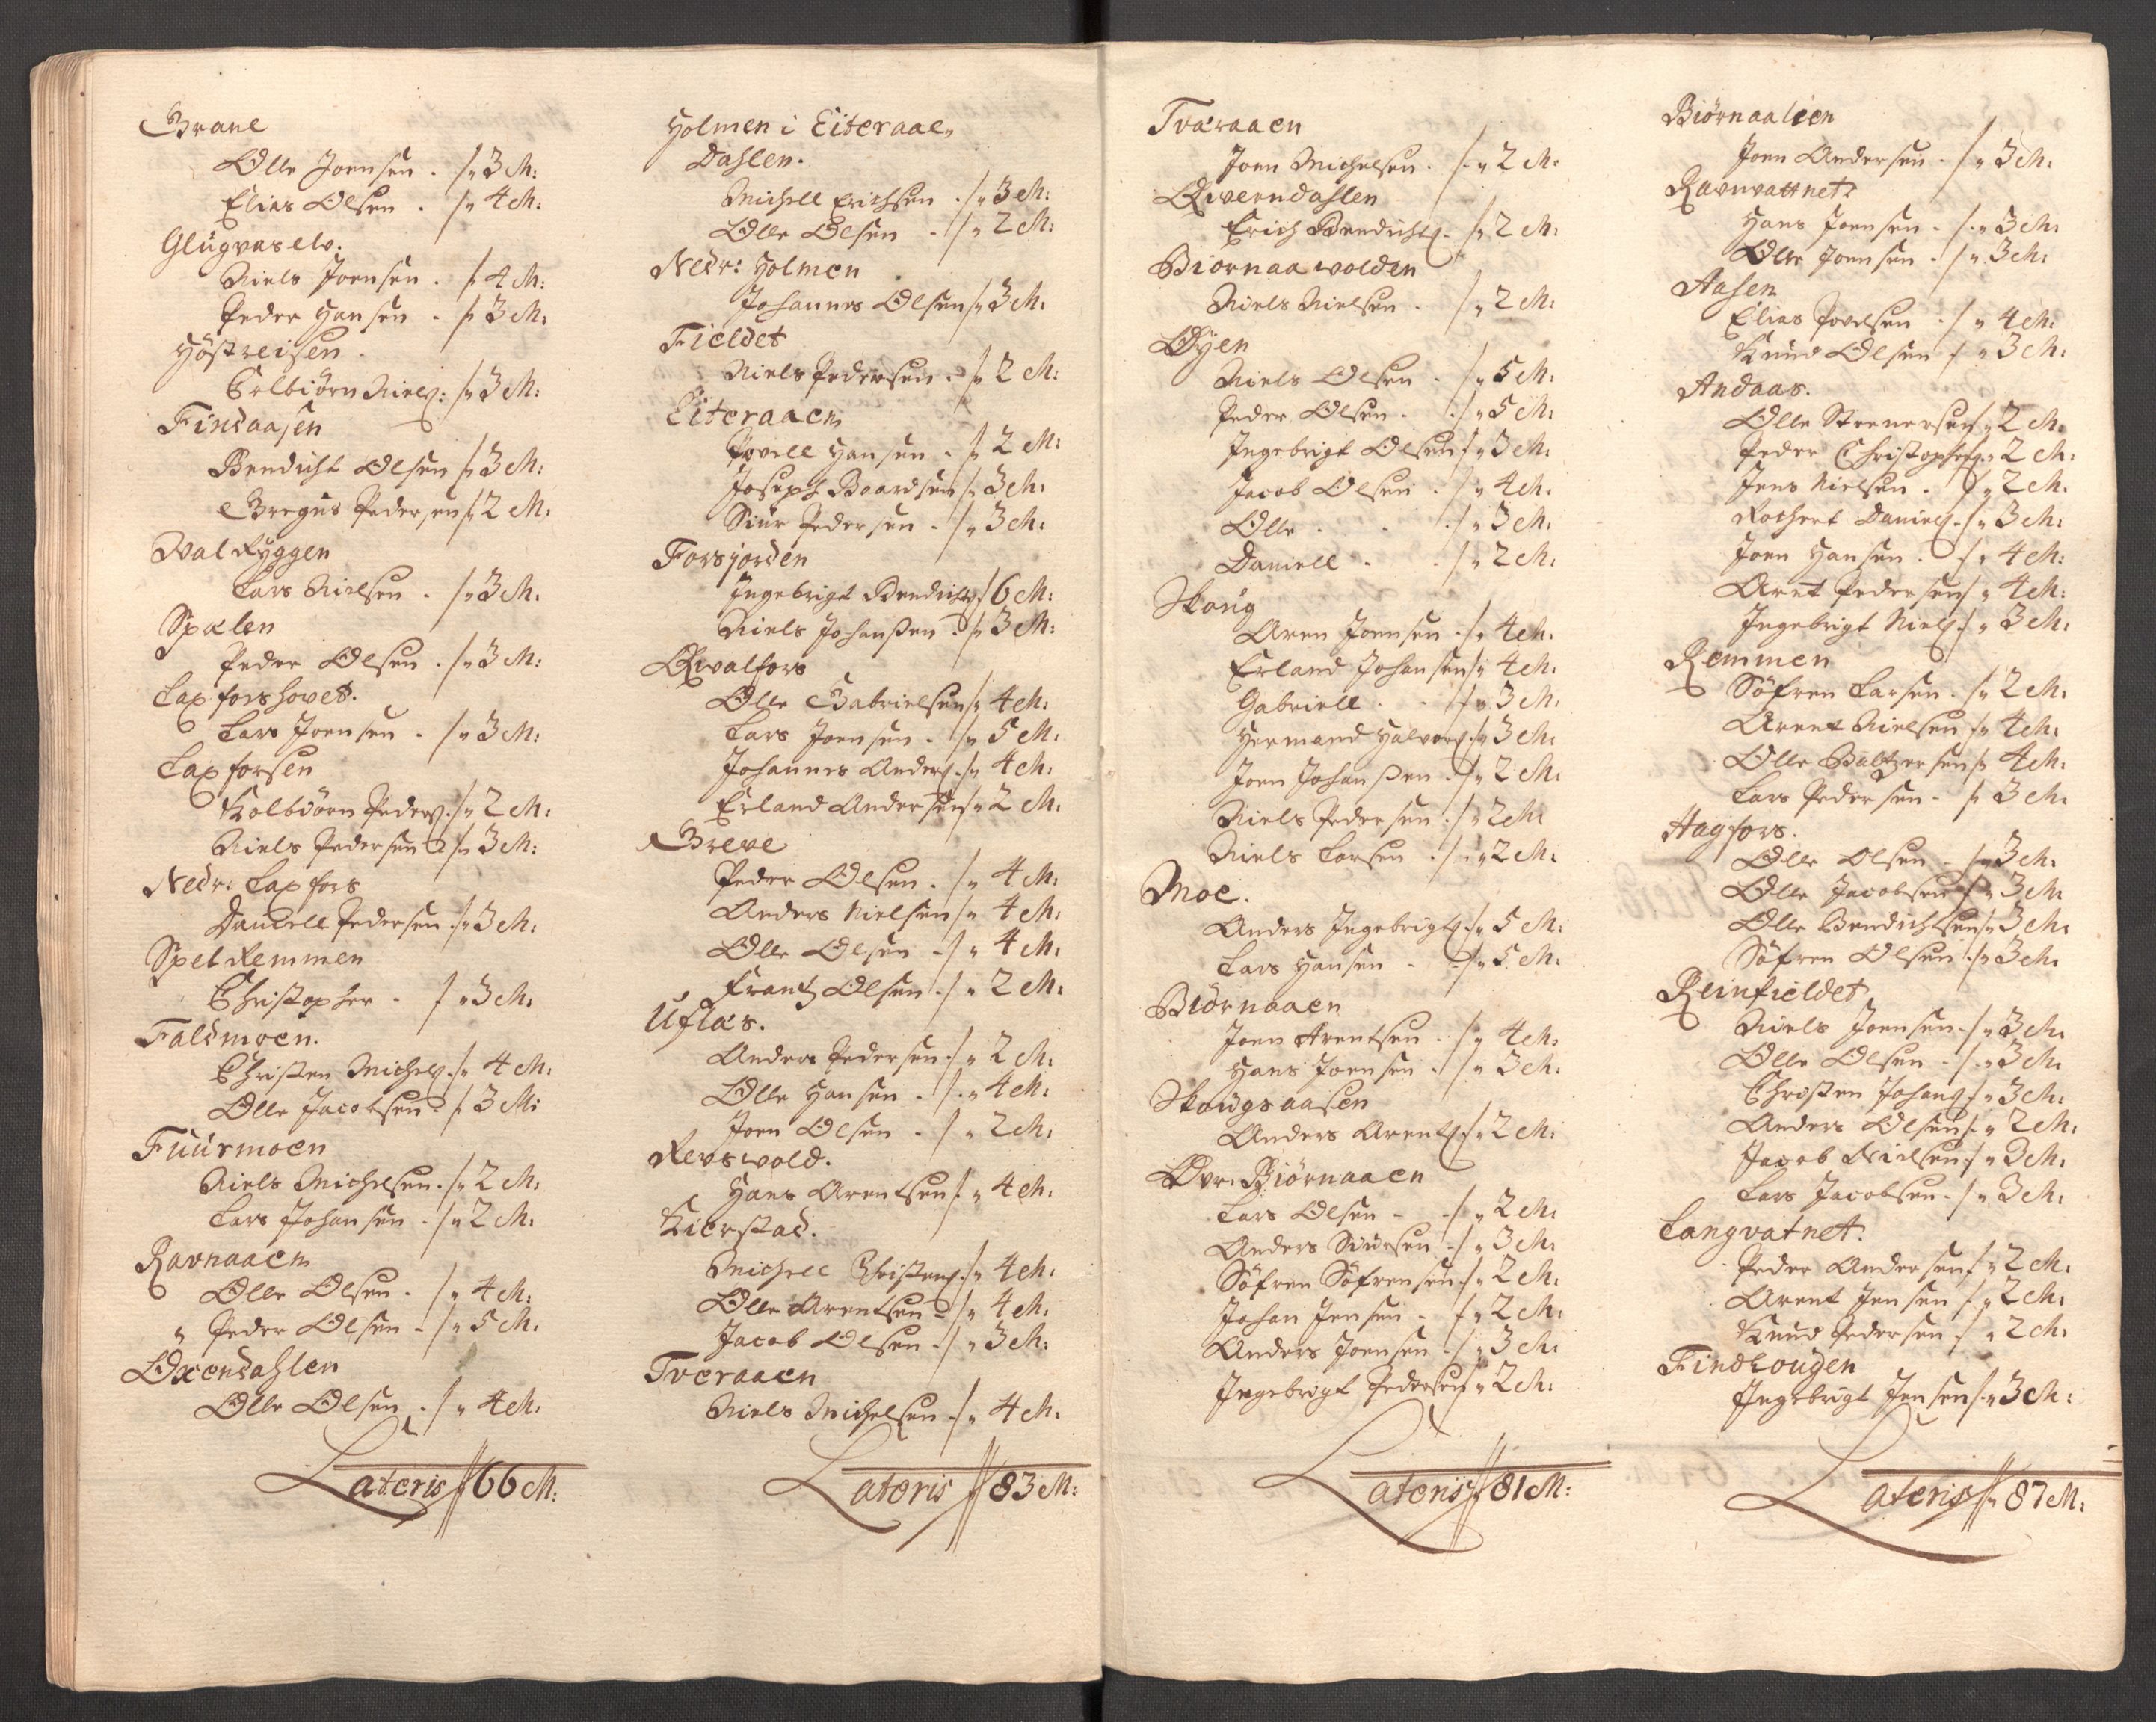 Brane
Olle Joensen . / „ 3 M:
Elias Olsen . / „ 4 M:
Glugvaselv.
Niels Joensen . / „ 4 M:
Peder Hansen . / „ 3 M:
Höstreisen.
Erlbiörn Niels: / „ 3 M:
Findaasen
Bendicht Olsen / „ 3 M:
Gregus Pedersen / „ 2 M:
Walryggen
Lars Nielsen . / „ 3 M:
Spalen
Peder Olsen . / „ 3 M:
Laxforshovet.
Lars Joensen . / „ 3 M:
Laxforsen
Kolbiörn Peders: / „ 2 M:
Niels Pedersen / „ 3 M:
Nedr: Laxfors
Daniell Pedersen / „ 3 M:
Spelremmen
Christopher . / „ 3 M:
Faldmoen.
Christen Michels: / „ 4 M:
Olle Jacobsen / „ 3 M:
Fuurmoen
Niels Michelsen . / „ 2 M:
Lars Johansen . / „ 2 M:
Ravnaaen
Olle Olsen . / „ 4 M:
„ Peder Olsen . / „ 5 M:
Oxendahlen
Olle Olsen . / „ 4 M:
Lateris // 66 M:
Holmen i Eiteraae„
Dahlen.
Michell Erichsen . / „ 3 M:
Olle Olsen . / „ 2 M:
Nedr: Holmen
Johannes Olsen / „ 3 M:
Fieldet
Niels Pedersen . / „ 2 M:
Eiteraaen
Povell Hansen . / „ 2 M:
Joseph Baardsen / „ 3 M:
Siur Pedersen . / „ 3 M:
Forsjorden
Ingebrigt Bendichs: / 6 M:
Niels Johanßen . / „ 3 M:
Qvalfors
Olle Gabrielsen / „ 4 M:
Lars Joensen . / „ 5 M:
Johannes Anders: / „ 4 M:
Erland Andersen / „ 2 M:
Greve
Peder Olsen . / „ 4 M:
Anders Nielsen / „ 4 M:
Olle Olsen . / „ 4 M:
Frantz Olsen . / „ 2 M:
Uflás.
Anders Pedersen . / „ 2 M:
Olle Hansen . / „ 4 M:
Joen Olsen . / „ 2 M:
Revswold.
Hans Arentsen / „ 4 M:
Kierstad.
Michell Christens: / „ 4 M:
Olle Arentsen . / „ 4 M:
Jacob Olsen . / „ 3 M:
Tveraaen
Niels Michelsen . / „ 4 M:
Lateris // 83 M:
Tváraaen
Joen Michelsen . / „ 2 M:
Qwerndahlen
Erich Bendichts: / „ 2 M:
Biornaawolden
Niels Nielsen . / „ 2 M:
Öyen
Niels Olsen . / „ 5 M:
Peder Olsen . / „ 5 M:
Ingebrigt Olsen / „ 3 M:
Jacob Olsen . / „ 4 M:
Olle . . / „ 3 M:
Daniell . . / „ 2 M:
Skoug
Aren Joensen . / „ 4 M:
Erland Johansen / „ 4 M:
Gabriell . . / „ 3 M:
Hermand Halvors: / „ 3 M:
Joen Johanßen . / „ 2 M:
Niels Pedersen . / „ 2 M:
Niels Larsen . / „ 2 M:
Moe.
Anders Ingebrigts: / „ 5 M:
Lars Hansen . / „ 5 M:
Biörnaaen
Joen Arentsen . / „ 4 M:
Hans Joensen . / „ 3 M:
Skougsaasen
Anders Arents: / „ 2 M:
Övr: Biörnaaen
Lars Olsen . / „ 2 M:
Anders Siursen . / „ 3 M:
Söfren Söfrensen / „ 2 M:
Johan Jensen . / „ 2 M:
Anders Joensen . / „ 3 M:
Ingebrigt Pedersen / „ 2 M:
Lateris // 81 M:
Biörnaalien
Joen Andersen . / „ 3 M:
Ravnvattnet
Hans Joensen . / „ 3 M:
Olle Joensen . / „ 3 M:
Aasen
Elias Povelsen . / „ 4 M:
Knud Olsen / „ 3 M:
Andaas.
Olle Steenersen / „ 2 M:
Peder Christophers: / „ 2 M:
Jens Nielsen . / „ 2 M:
Rothert Daniels: / „ 3 M:
Joen Hansen . / „ 4 M:
Arnt Pedersen / „ 4 M:
Ingebrigt Niels: / „ 3 M:
Remmen
Söfren Larsen . / „ 2 M:
Arent Nielsen / „ 4 M:
Olle Baltzersen / „ 4 M:
Lars Pedersen . / „ 3 M:
Hagfors.
Olle Olsen . / „ 3 M:
Olle Jacobsen / „ 3 M:
Olle Bendichtsen / „ 3 M:
Söfren Olsen / „ 3 M:
Reinfieldet
Niels Joensen . / „ 3 M:
Olle Olsen . / „ 3 M:
Christen Johans: / „ 3 M:
Anders Olsen / „ 2 M:
Jacob Nielsen / „ 3 M:
Lars Jacobsen . / „ 3 M:
Langvatnet.
Peder Andersen / „ 2 M:
Arent Jensen / „ 2 M:
Knud Pedersen . / „ 2 M:
Findhougen
Ingebrigt Jensen / „ 3 M:
Lateris // 87 M: